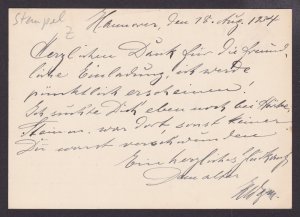 Stempel
Z
Hannover, den 18. Aug. 1884
Herzlichen Dank für die freund-
liche Einladung, ich werde
pünktlich erscheinen!
Ich suchte Dich eben noch bei
war dort, sonst keiner
Du warst verschwunden
Ein herzliches Glückauf
Dein alter